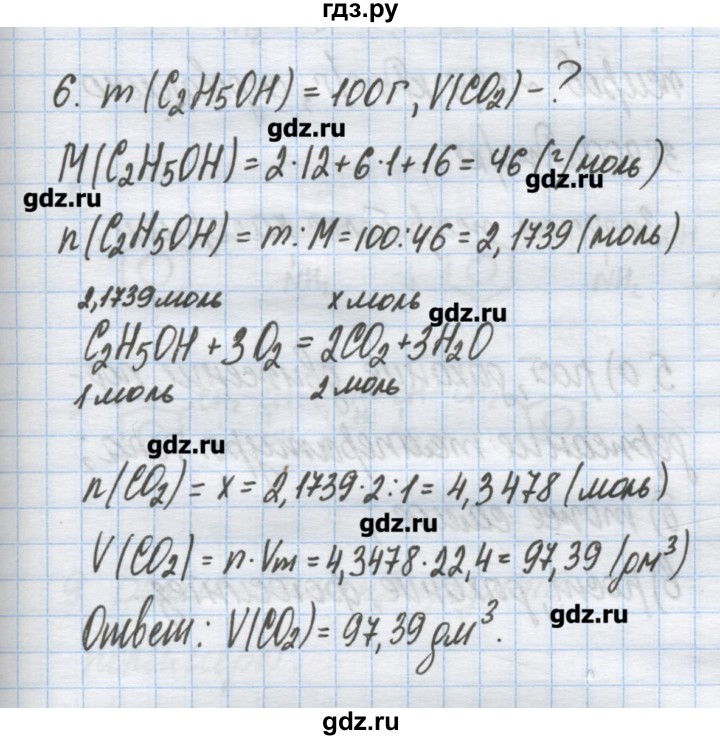 гдз.ру
6. m(C₂H₅OH) = 100г, V(CO₂) - ?
gdz.ru
M(C₂H₅OH) = 2·12+6·1+16 = 46 (г/моль)
gdz.ru
gdz.ru
n(C₂H₅OH) = m:M=100:46=2,1739 (моль)
2,1739 моль x моль
gdz.ru
C₂H₅OH + 3O₂ = 2CO₂+3H₂O
1 моль 2 моль
gdz.ru
n(CO₂) = x = 2,1739·2:1 = 4,3478 (моль)
gdz.ru
V(CO₂) = n·Vm = 4,3478·22,4 = 97,39 (дм³)
gdz.ru
Ответ: V(CO₂) = 97,39 дм³.
gdz.ru